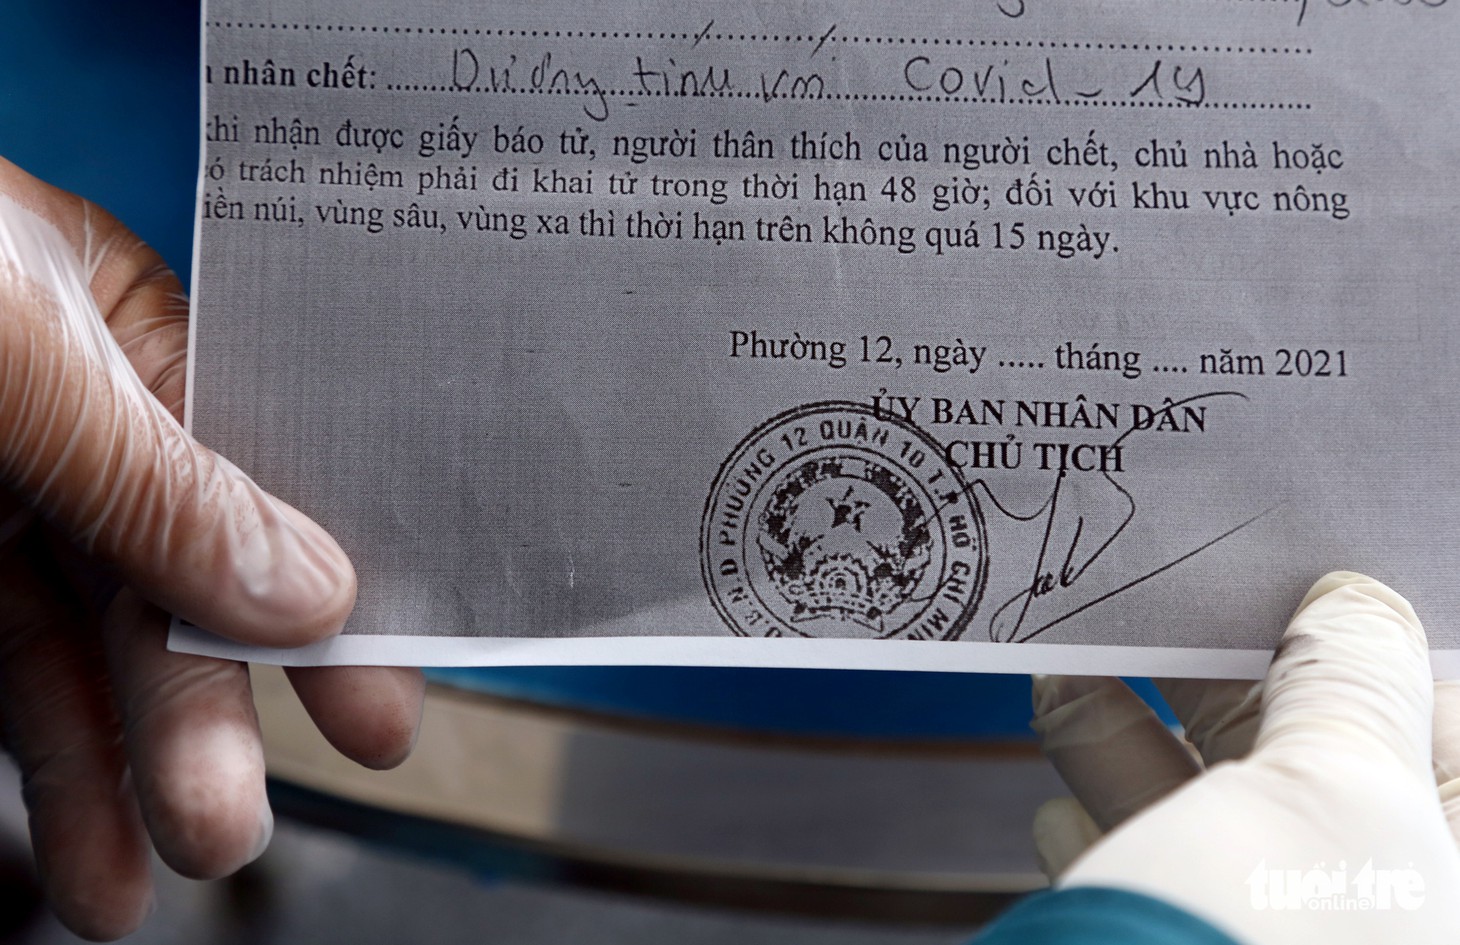 nhân chết: Dương tính với Covid - 19
khi nhận được giấy báo tử, người thân thích của người chết, chủ nhà hoặc
có trách nhiệm phải đi khai tử trong thời hạn 48 giờ; đối với khu vực nông
iền núi, vùng sâu, vùng xa thì thời hạn trên không quá 15 ngày.
Phường 12, ngày ..... tháng .... năm 2021
ỦY BAN NHÂN DÂN
CHỦ TỊCH
U.B.N.D PHƯỜNG 12 QUẬN 10 T.P HỒ CHÍ MIN
tuổi trẻ
online